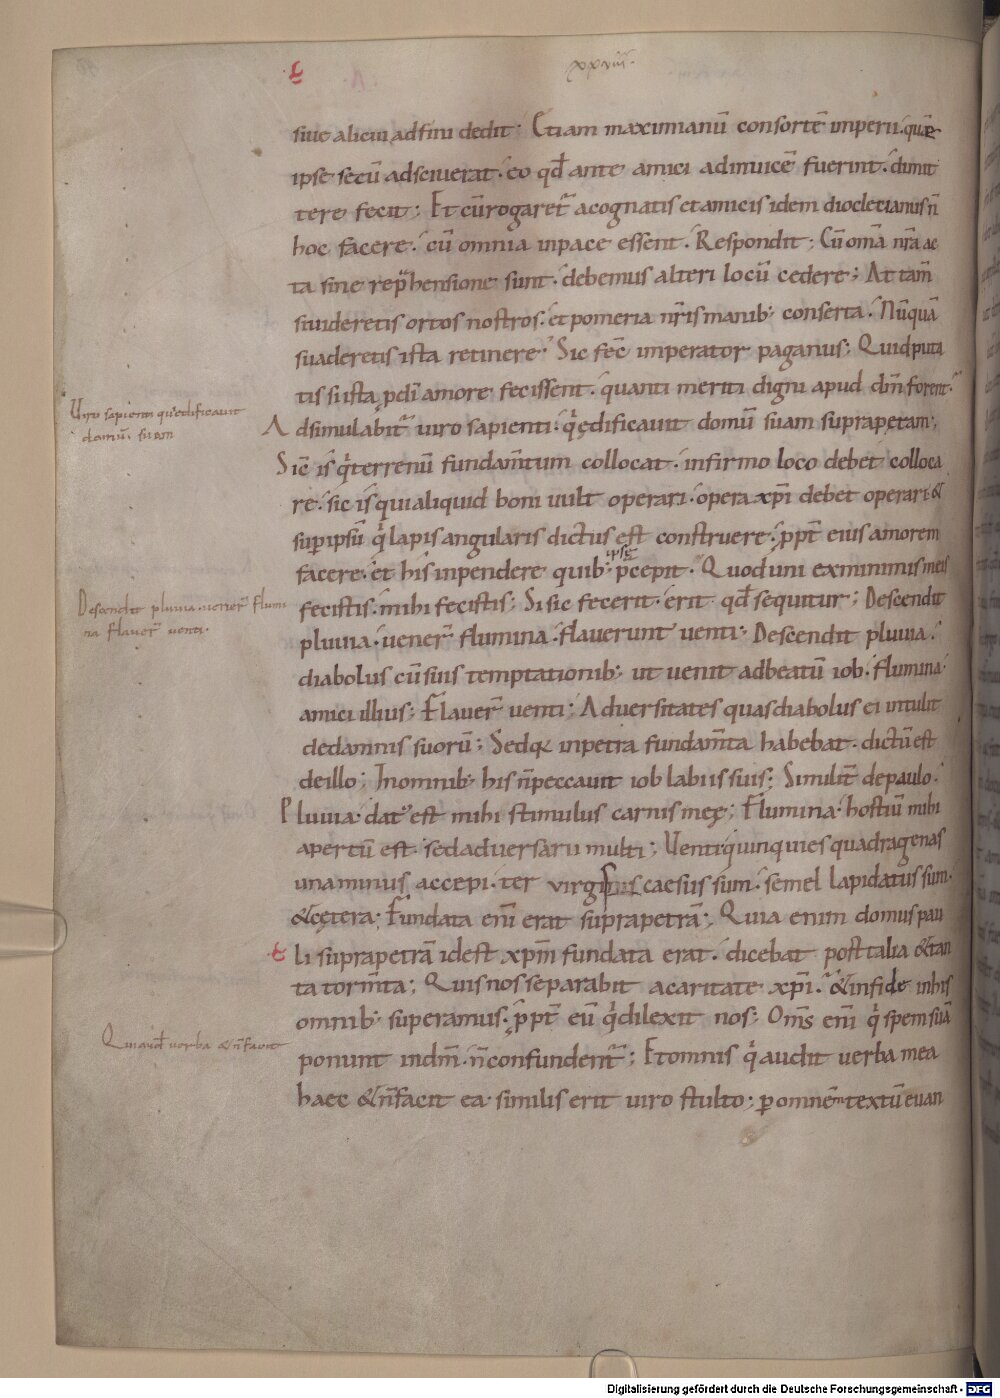 xxviii.
siue alicui adfini dedit; Etiam maximianū consortē imperii. quē
ipse secū adsciuerat. eo qđ ante amici adinuicē fuerint. dimit
tere fecit; Et cū rogaret̃ acognatis et amicis idem diocletianus ñ
hoc facere. cū omnia inpace essent. Respondit; Cū om̄a nr̄a ac
ta sine rep̄hensione sunt. debemus alteri locū cedere; At tam̄
si uideretis ortos nostros. et pomeria nr̄is manib; conserta. Nūquā
suaderetis ista retinere; Sic fec̄ imperator paganus; Quid puta
tis si ista p dī amore fecissent. quanti meriti digni apud dm̄ forent.
Adsimulabit̃ uiro sapienti. q̇ ędificauit domū suam supra petram;
Sic is q̇ terrenū fundam̄tum collocat. in firmo loco debet colloca
re. sic is qui aliquid boni uult operari. opera xp̄i debet operari. &
sup ipsū q̇ lapis angularis dictus est construere. ppt̄ eius amorem
facere. et his inpendere quib; ipse pcepit. Quod uni ex minimis meis
fecistis. mihi fecistis; Si sic fecerit. erit qđ sequitur; Descendit
pluuia. uener̃ flumina. flauerunt uenti; Descendit pluuia.
diabolus cū suis temptationib; ut uenit ad beatū iob. flumina.
amici illius; Flauer̃ uenti; Aduersitates quas diabolus ei intulit
de damnis suorū; Sed q; in petra fundam̄ta habebat. dictū est
de illo; In omnib; his ñ peccauit iob labiis suis; Similit̄ de paulo.
Pluuia. dat᷒ est mihi stimulus carnis meę; Flumina. hostiū mihi
apertū est. sed aduersarii multi; Uenti quinquies quadragenas
una minus accepi. ter virgis caesus sum. semel lapidatus sum.
& cętera; Fundata eni erat supra petrā; Quia enim domus pau
li supra petrā id est xp̄m fundata erat. dicebat post talia & tan
ta torm̄ta; Quis nos separabit a caritate xp̄i. & infide in his
omnib; superamus. ppt̄ eū q̇ dilexit nos; Om̄s eni q̇ spem suā
ponunt in dm̄. ñ confundent̃; Et omnis q̇ audit uerba mea
haec & ñ facit ea. similis erit uiro stulto; p omnem textū euan
Uiro sapienti qui ędificauit
domū. suam
Descendit pluuia. uener̃ flumi
na flauer̃ uenti.
Qui audit uerba & ñ facit